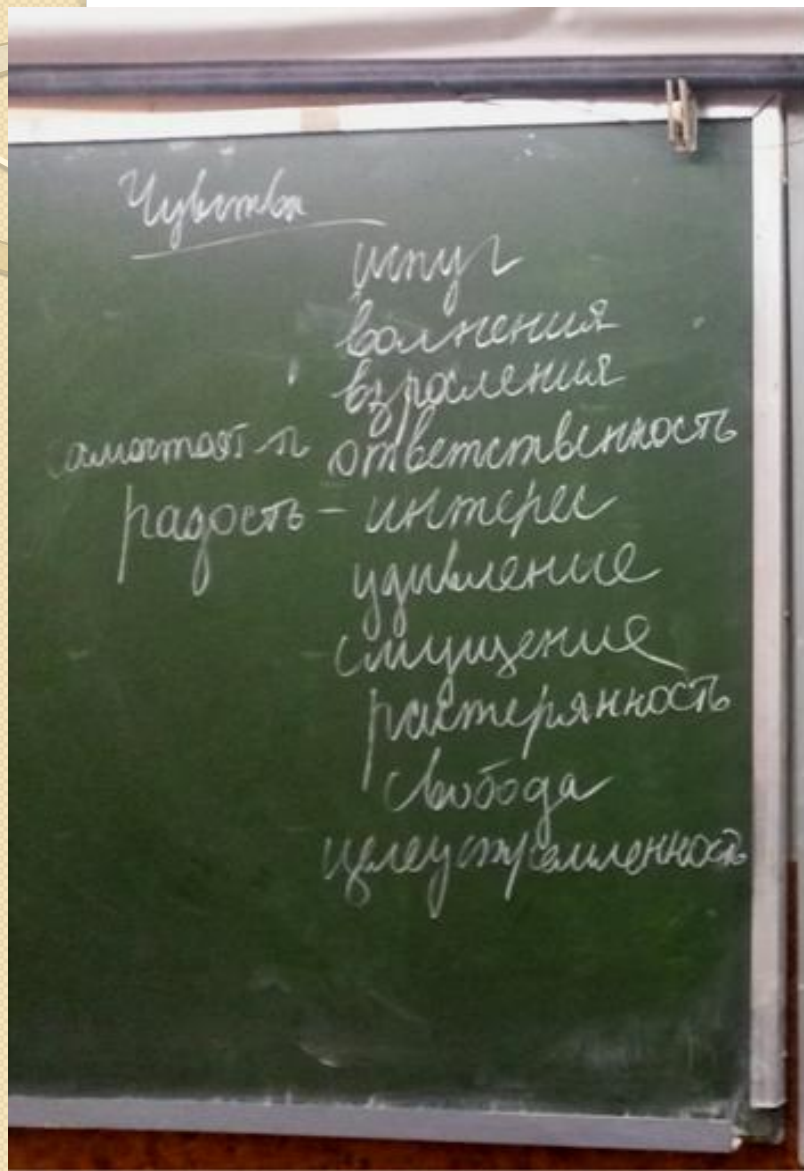 Чувства
испуг
волнения
взросления
самостоят-я ответственность
радость - интерес
удивление
смущение
растерянность
свобода
целеустремленность